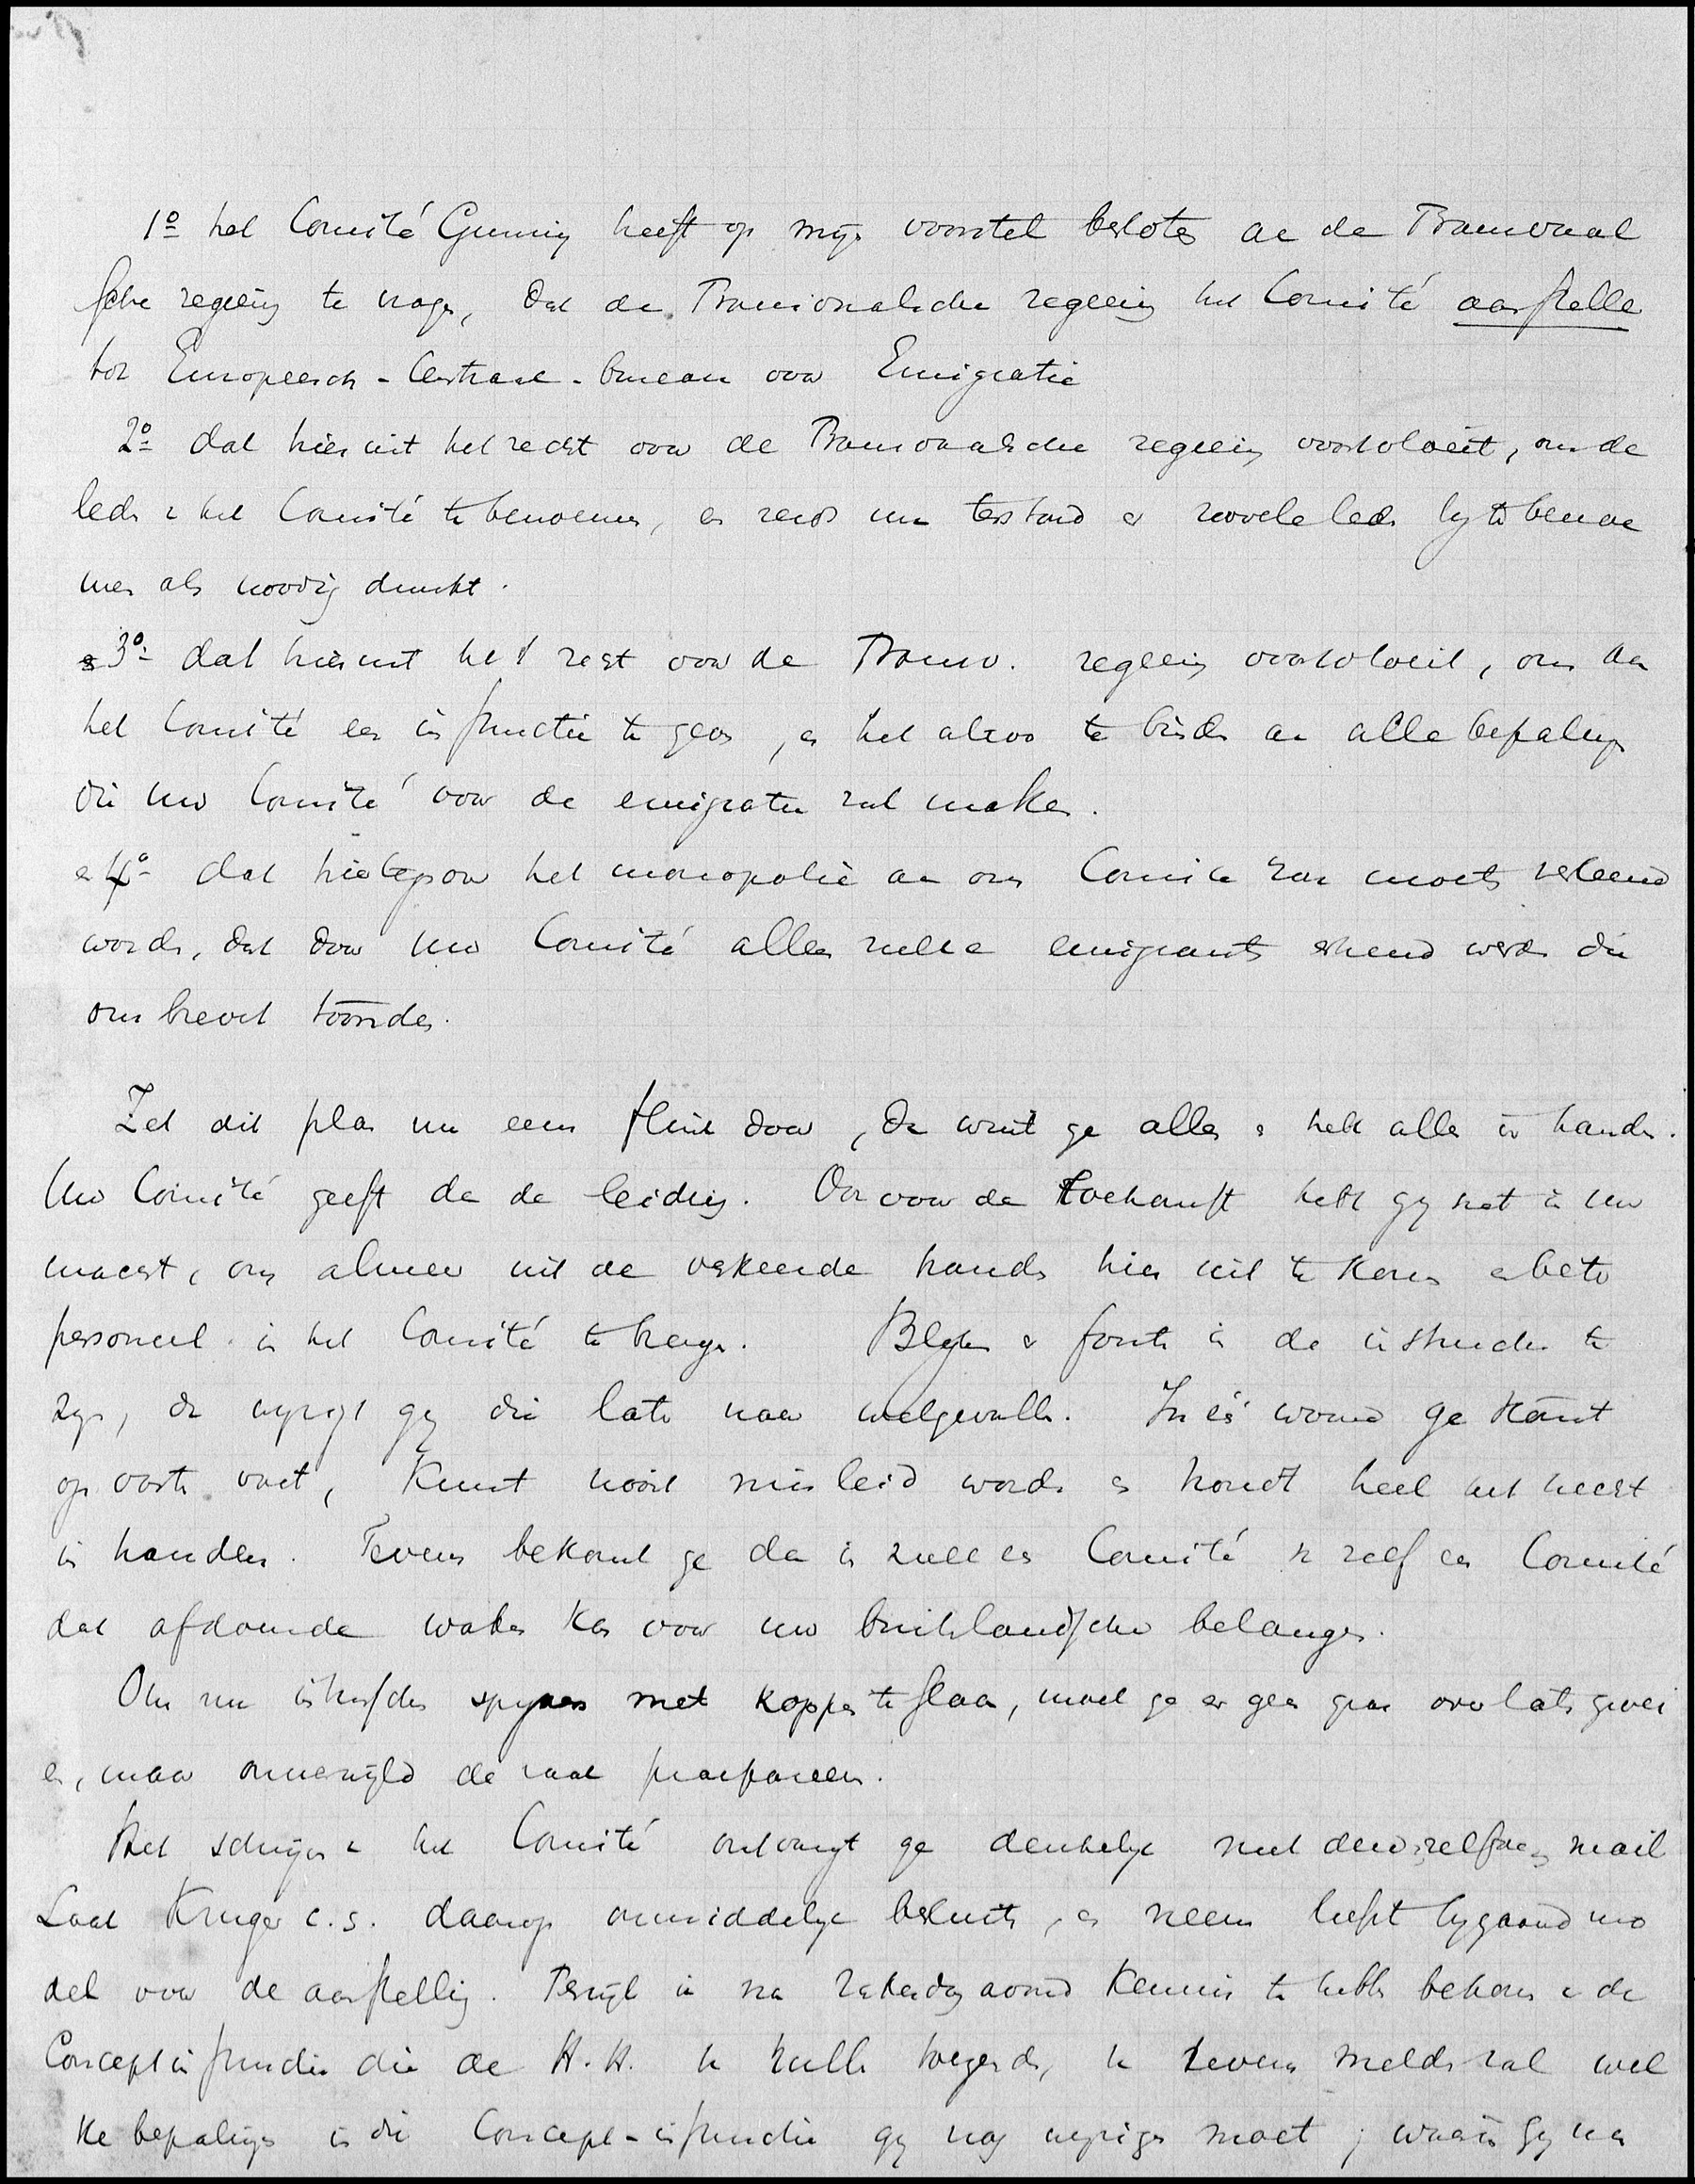 1o het Comité Gunning heeft op mijn voorstel besloten aan de Transvaal
sche regeering te vragen, dat de Transvaalsche regeering het Comité aanstelle
tot Europeesch-Centraal-bureau voor Emigratie
2o dat hieruit het recht voor de Transvaalsche regeering voortvloeit, om de
leden v het Comité te benoemen, en reeds nu terstond er zoovele leden bij te benoe
men als noodig dunkt.
en 3o dat hieruit het recht voor de Transv. regeering voortvloeit, om aan
het Comité een instructie te geven, en het alzoo te binden aan alle bepalingen
die uw Comité voor de emigratie zal maken.
en 4o dat hiertegenover het monopolie aan ons Comité zou moeten verleend
worden, dat door uw Comité alleen zulke emigranten erkend werden die
ons brevet toonden.
Zet dit plan nu eens flink door, dan wint ge alles en hebt alles in handen.
Uw Comité geeft dan de leiding. Ook voor de toekomst hebt gij het in uw
macht, om alweer uit de verkeerde handen hier uit te komen en beter
personeel in het Comité te brengen. Blijken er fouten in de instructie te
zijn, dan wijzigt gij die later naar welgevallen. In één woord ge komt
op vasten voet, kunt nooit misleid worden en houdt heel het heft
in handen. Tevens bekomt ge dan in zulk een Comité v zelf een Comité
dat afdoende waken kan voor uw buitenlandsche belangen.
Om nu intusschen spijkers met koppen te slaan, moet ge er geen gras over laten groei
en, maar onverwijld de zaak prepareeren.
Het schrijven v het Comité ontvangt ge denkelijk met dezelfde mail
Laat Kruger c.s. daarop onmiddelijk besluiten, en neem liefst bijgaand mo
del voor de aanstelling. Terwijl ik na Zaterdag avond kennis te hebben bekomen v de
Conceptinstructie die de H.H. u zullen toezenden, u tevens melden zal wel
ke bepalingen in die Concept-instructie gij nog wijzigen moet; waarin gij na